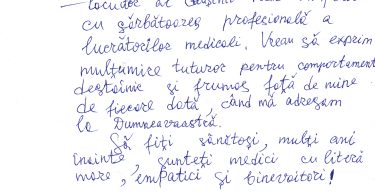 locuitor al
cu sărbătoarea profesională a
lucrătorilor medicali. Vreau să exprim
mulțumice tuturor pentru comportament
destoinic și frumos față de mine
de fiecare dată, când mă adresam
la Dumneavoastră.
Să fiți sănătoși, mulți ani
înainte, sunteți medici cu literă
mare, empatici și binevoitori!